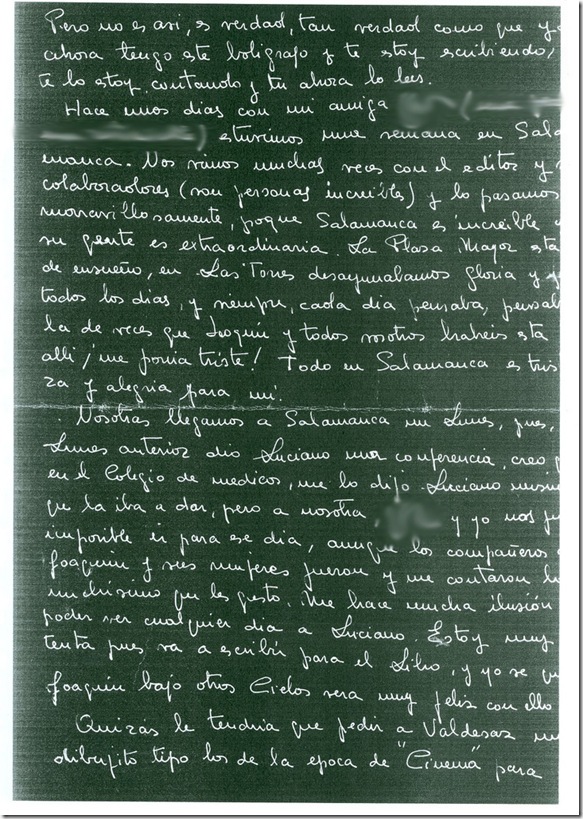 Pero no es asi, es verdad, tan verdad como que yo
ahora tengo este boligrafo y te estoy escribiendo,
te lo estoy contando y tu ahora lo lees.
Hace unos dias con mi amiga
estuvimos una semana en Sala
manca. Nos vimos muchas veces con el editor y
colaboradores (son personas increibles) y lo pasamos
maravillosamente, poque Salamanca es increible
su gente es extraordinaria. La Plasa Mayor esta
de ensueño, en Las Torres desayunabamos Gloria y yo
todos los dias, y siempre, cada dia pensaba, pensab
la de veces que Joaquin y todos vosotros habeis esta
alli ¡me ponia triste! Todo en Salamanca es tris
za y alegria para mi.
Nosotras llegamos a Salamanca un Lunes, pues,
Lunes anterior dio Luciano una conferencia, creo q
en el Colegio de medicos, me lo dijo Luciano mism
que la iba a dar, pero a nosotra y yo nos fu
imposible ir para ese dia, aunque los compañeros
Joaquin y sus mujeres fueron y me contaron
muchisimo que les gusto. Me hace mucha ilusión
poder ver cualquier dia a Luciano. Estoy muy
tenta pues va a escribir para el Libro, y yo se qu
Joaquin bajo otros Cielos sera muy feliz con ello
Quizás le tendria que pedir a Valdesas un
dibujito tipo los de la epoca de "Cinema" para